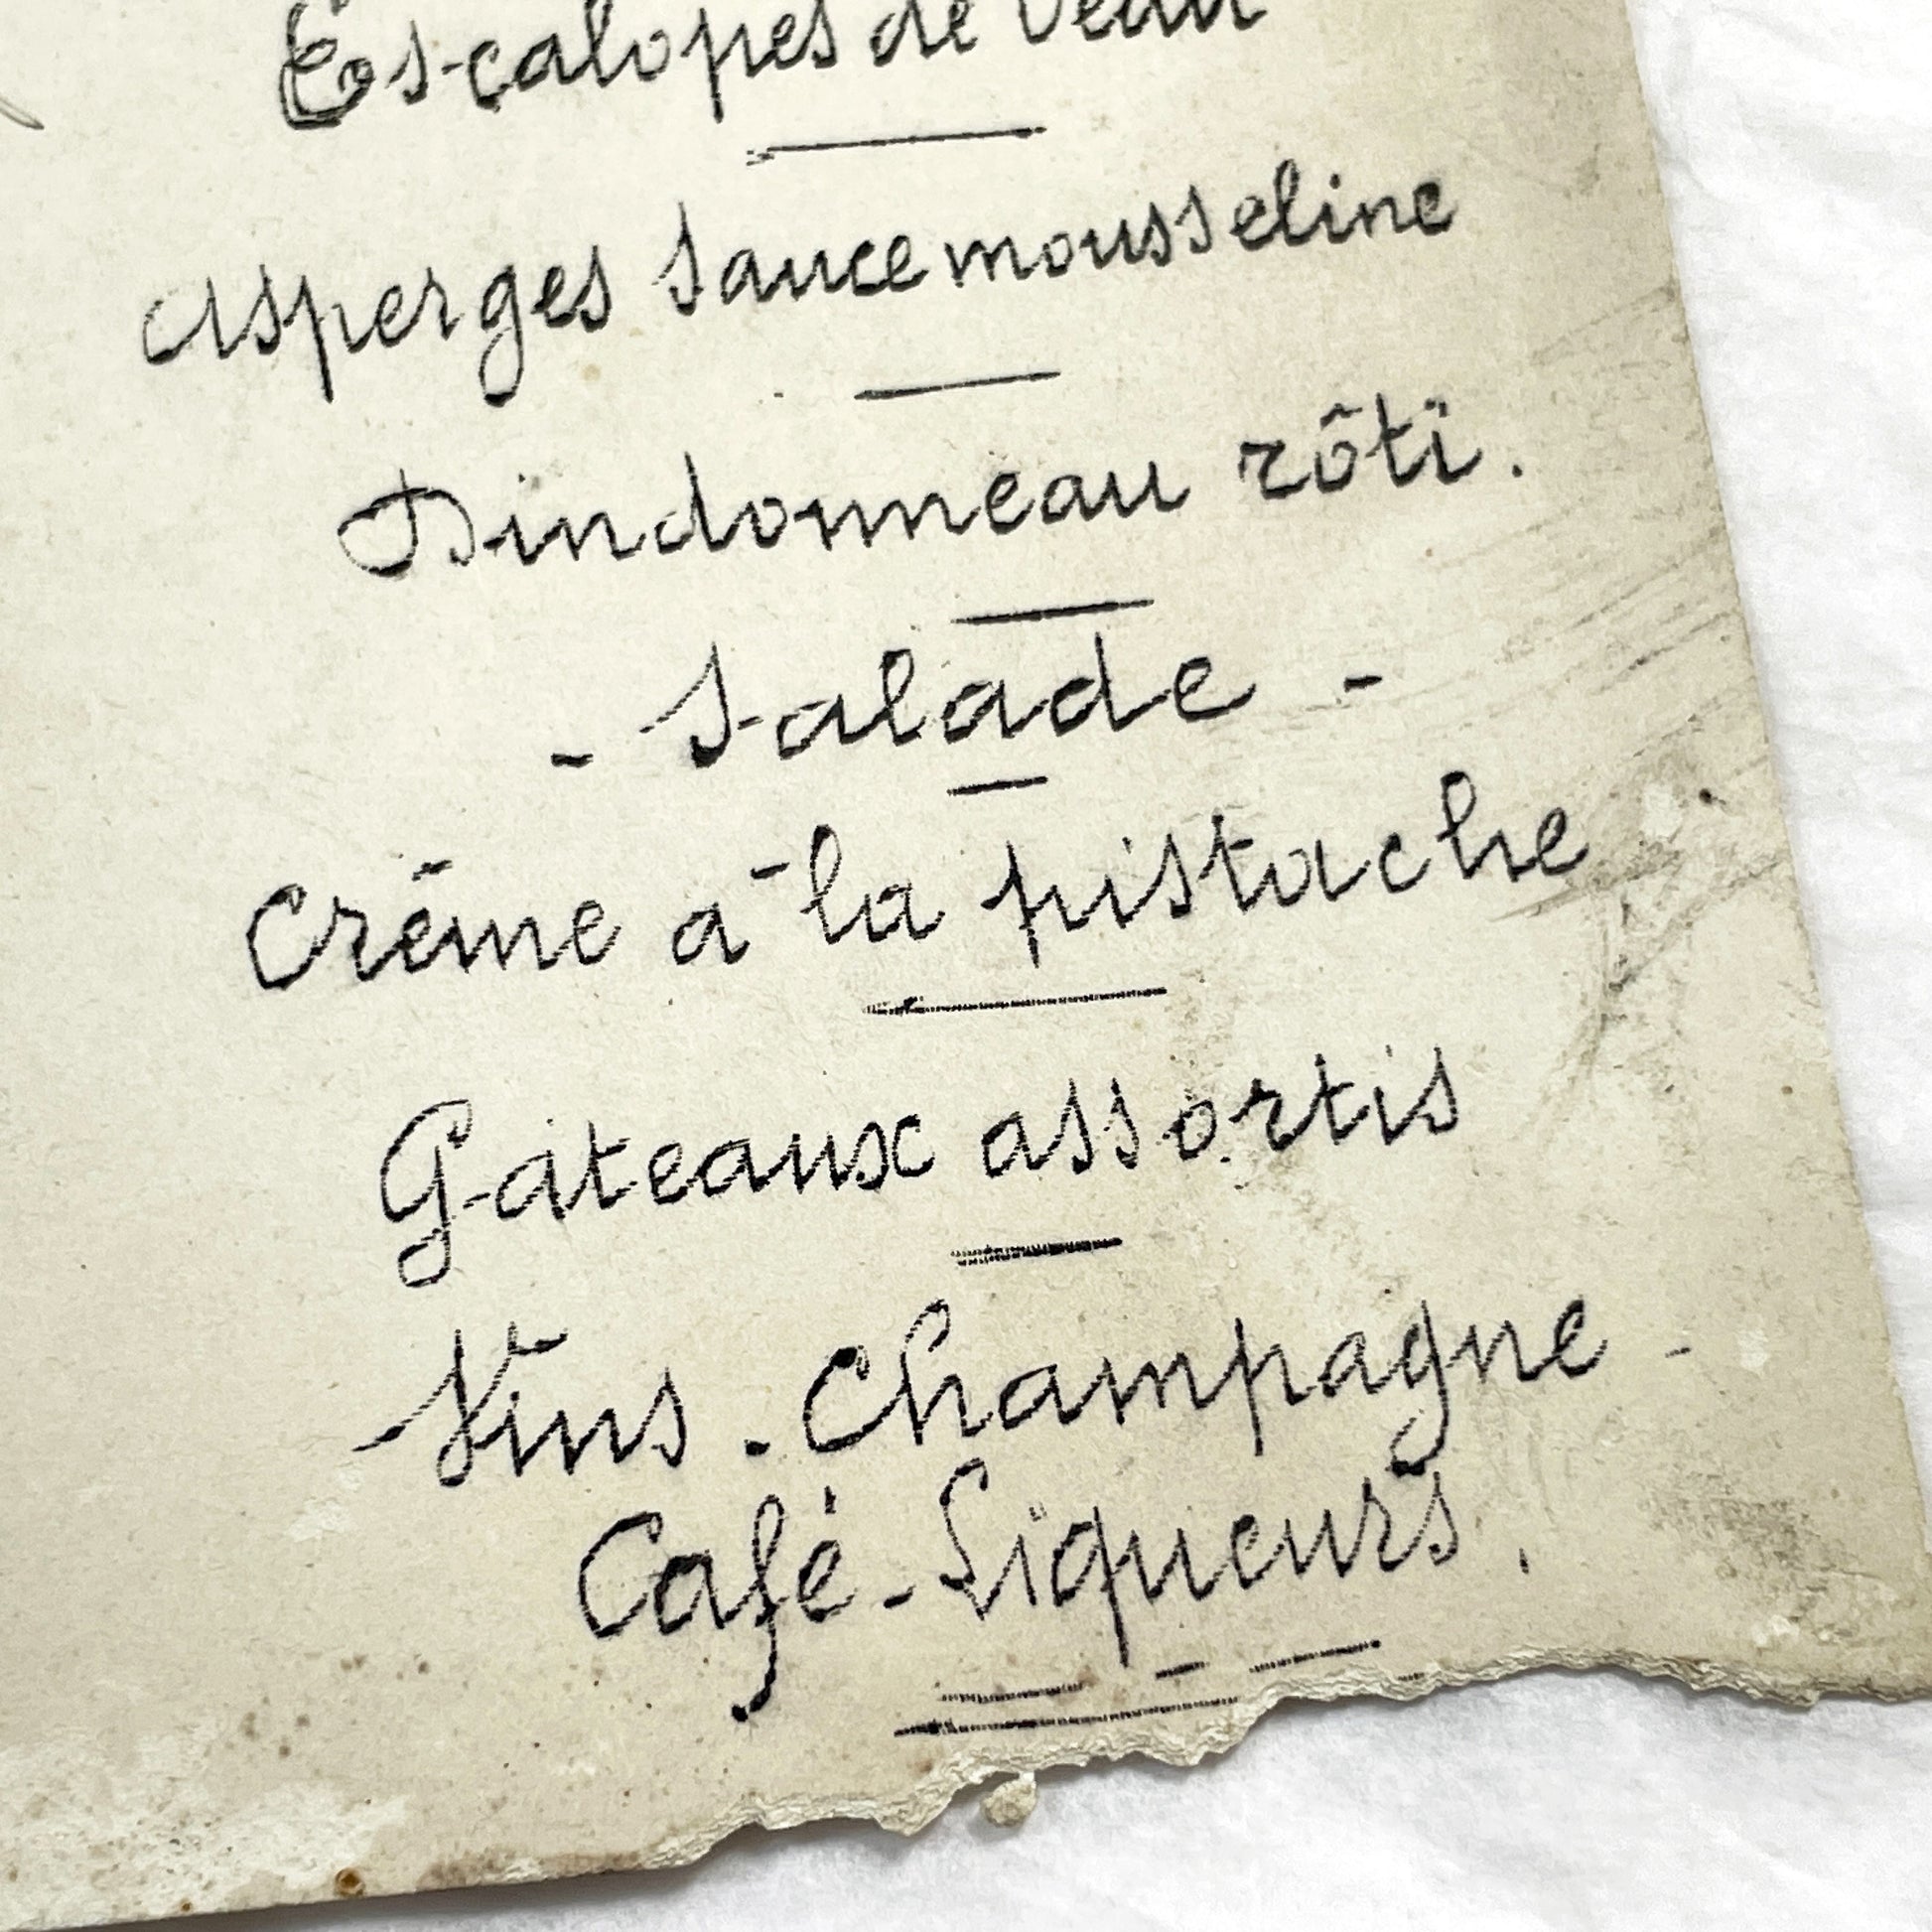 Escalopes de veau
Asperges sauce mousseline
Dindonneau rôti.
- Salade -
Crême à la pistache
Gâteaux assortis
- Vins - Champagne -
Café - Liqueurs.